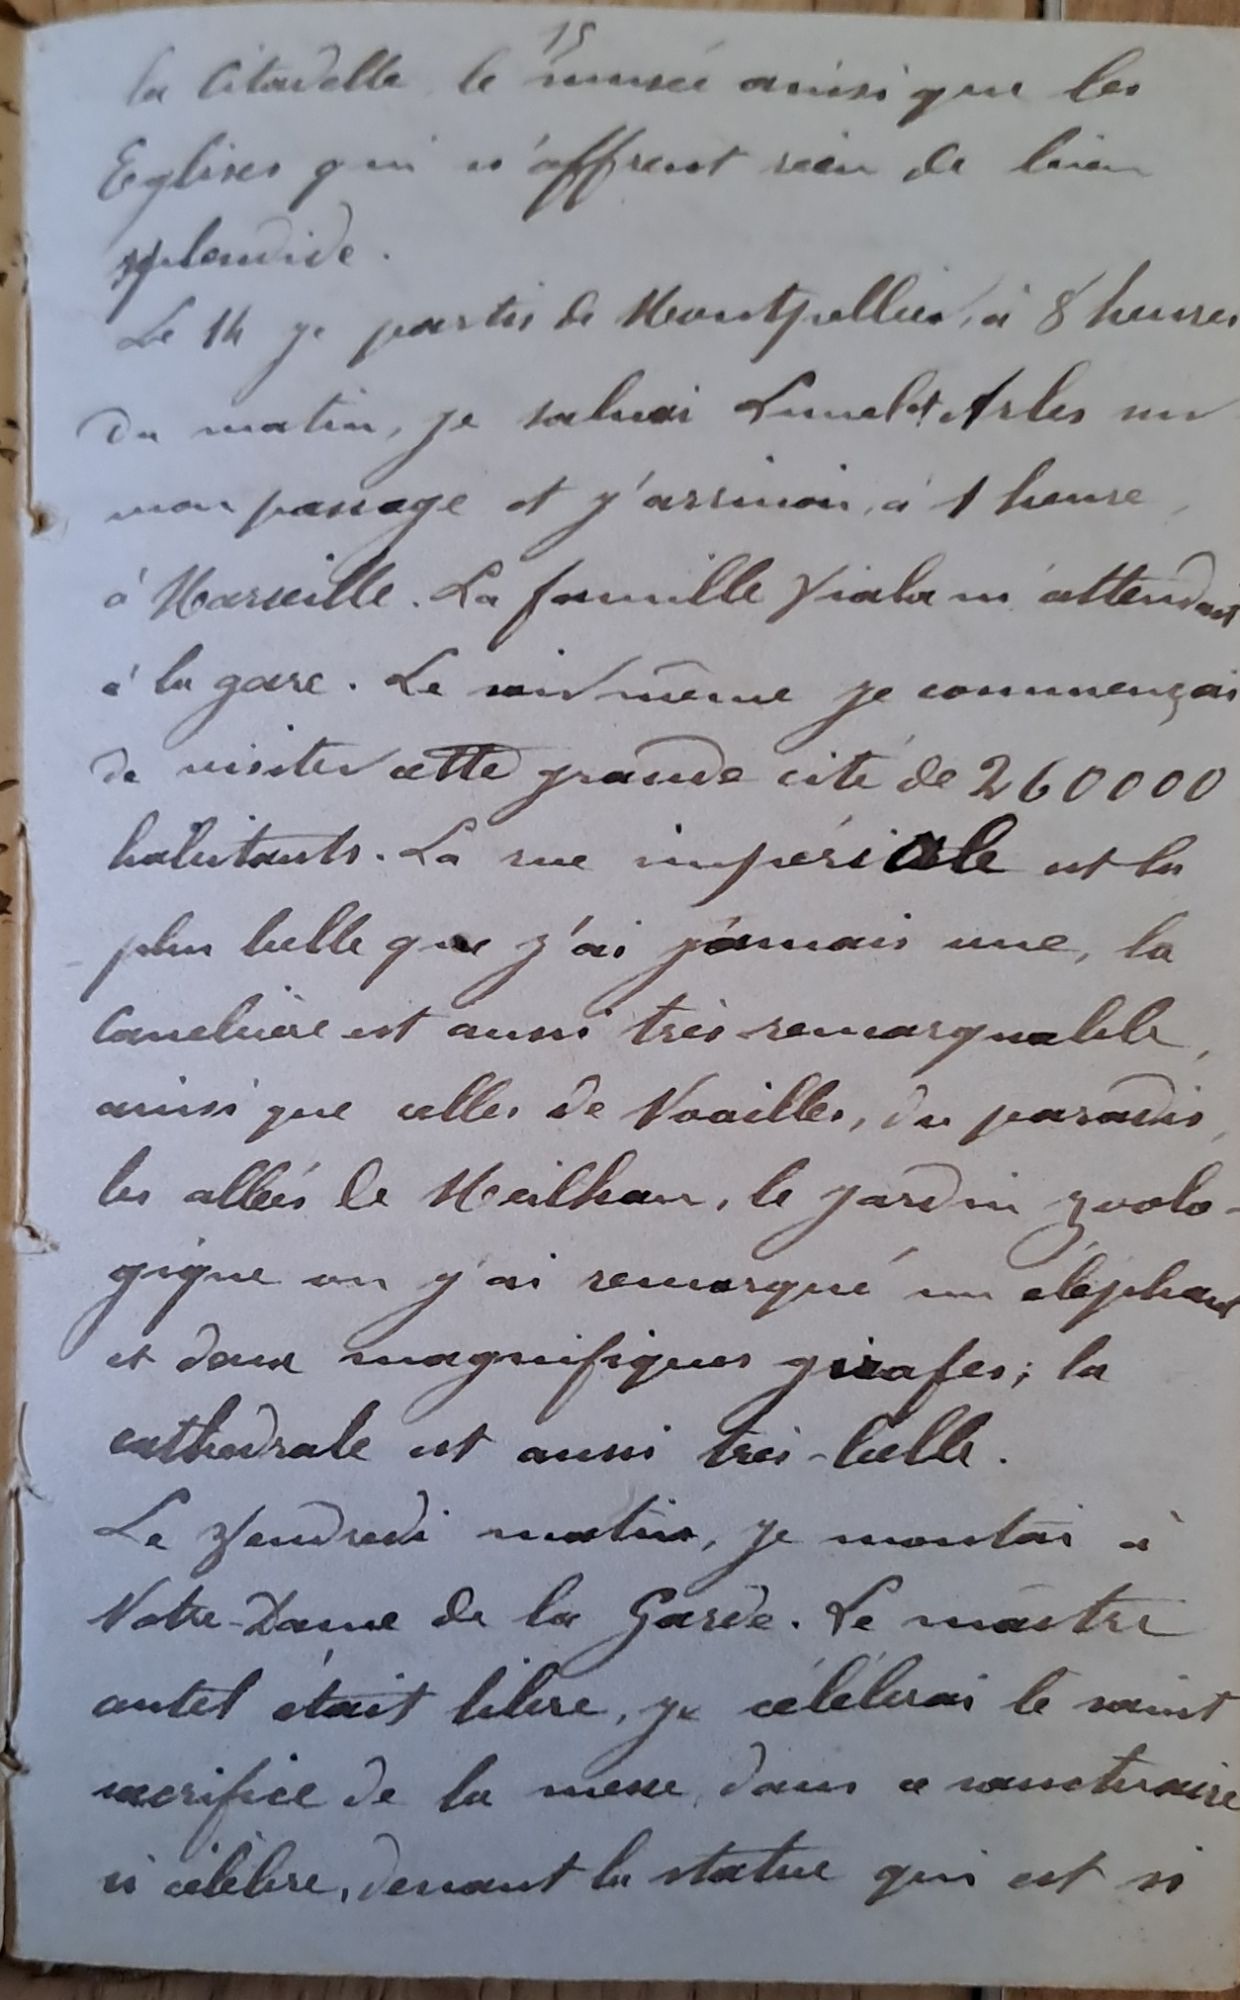 15
la Citadelle, le musée ainsi que les
Eglises qui n'offrent rien de bien
splendide.
Le 14 je partis de Montpellier, à 8 heures
du matin, je saluai Lunel et Arles sur
mon passage et j'arrivai, à 1 heure,
à Marseille. La famille Viala m'attendait
à la gare. Le soir même je commençai
de visiter cette grande cité de 260000
habitants. La rue impériale est la
plus belle que j'ai jamais vue, la
Canebière est aussi très-remarquable,
ainsi que celles de Noailles, du paradis,
les allées de Meilhan, le jardin zoolo-
gique on j'ai remarqué un éléphant
et deux magnifiques girafes; la
cathédrale est aussi très-belle.
Le Vendredi matin, je montai à
Notre-Dame de la Garde. Le maître
autel était libre, je célébrai le saint
sacrifice de la messe, dans ce sanctuaire
si célèbre, devant la statue qui est si